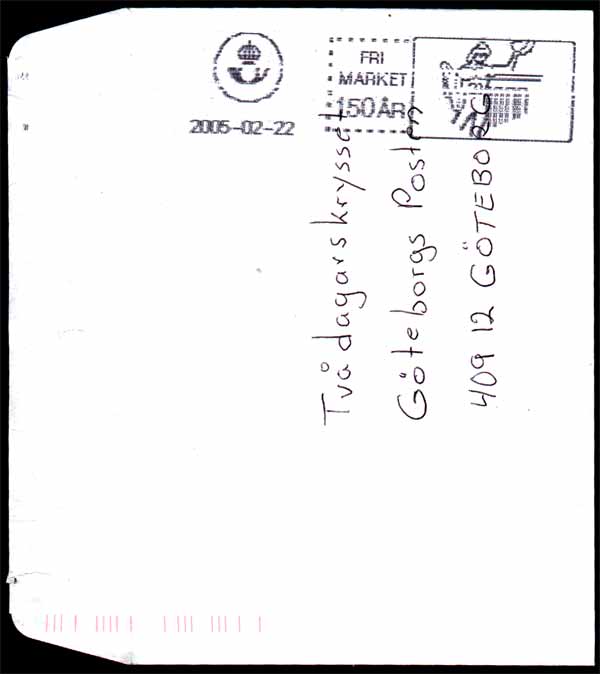 FRI
MARKET
150 ÅR
2005-02-22
Två dagars krysset
Göteborgs Posten
409 12 GÖTEBORG